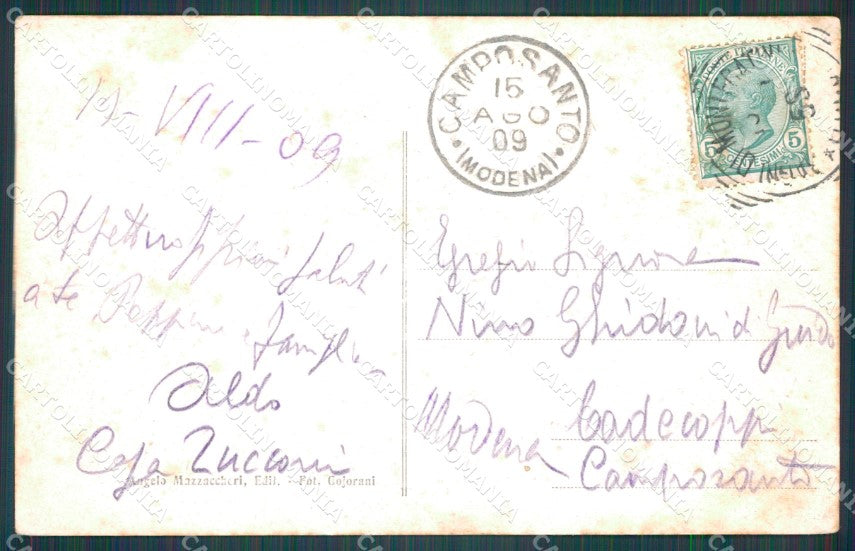 VIII-09
Affettuosissimi saluti
a te Peppino e famiglia
Aldo
Casa Zucconi
Angelo Mazzaccheri, Edit. - Fot. Cojorani
CAMPOSANTO
15
AGO
09
(MODENA)
5 5
CENTESIMI
Egregio Signore
Nino Ghidoni di Guido
Cadecoppi
Modena Camposanto
CARTOLINOMANIA